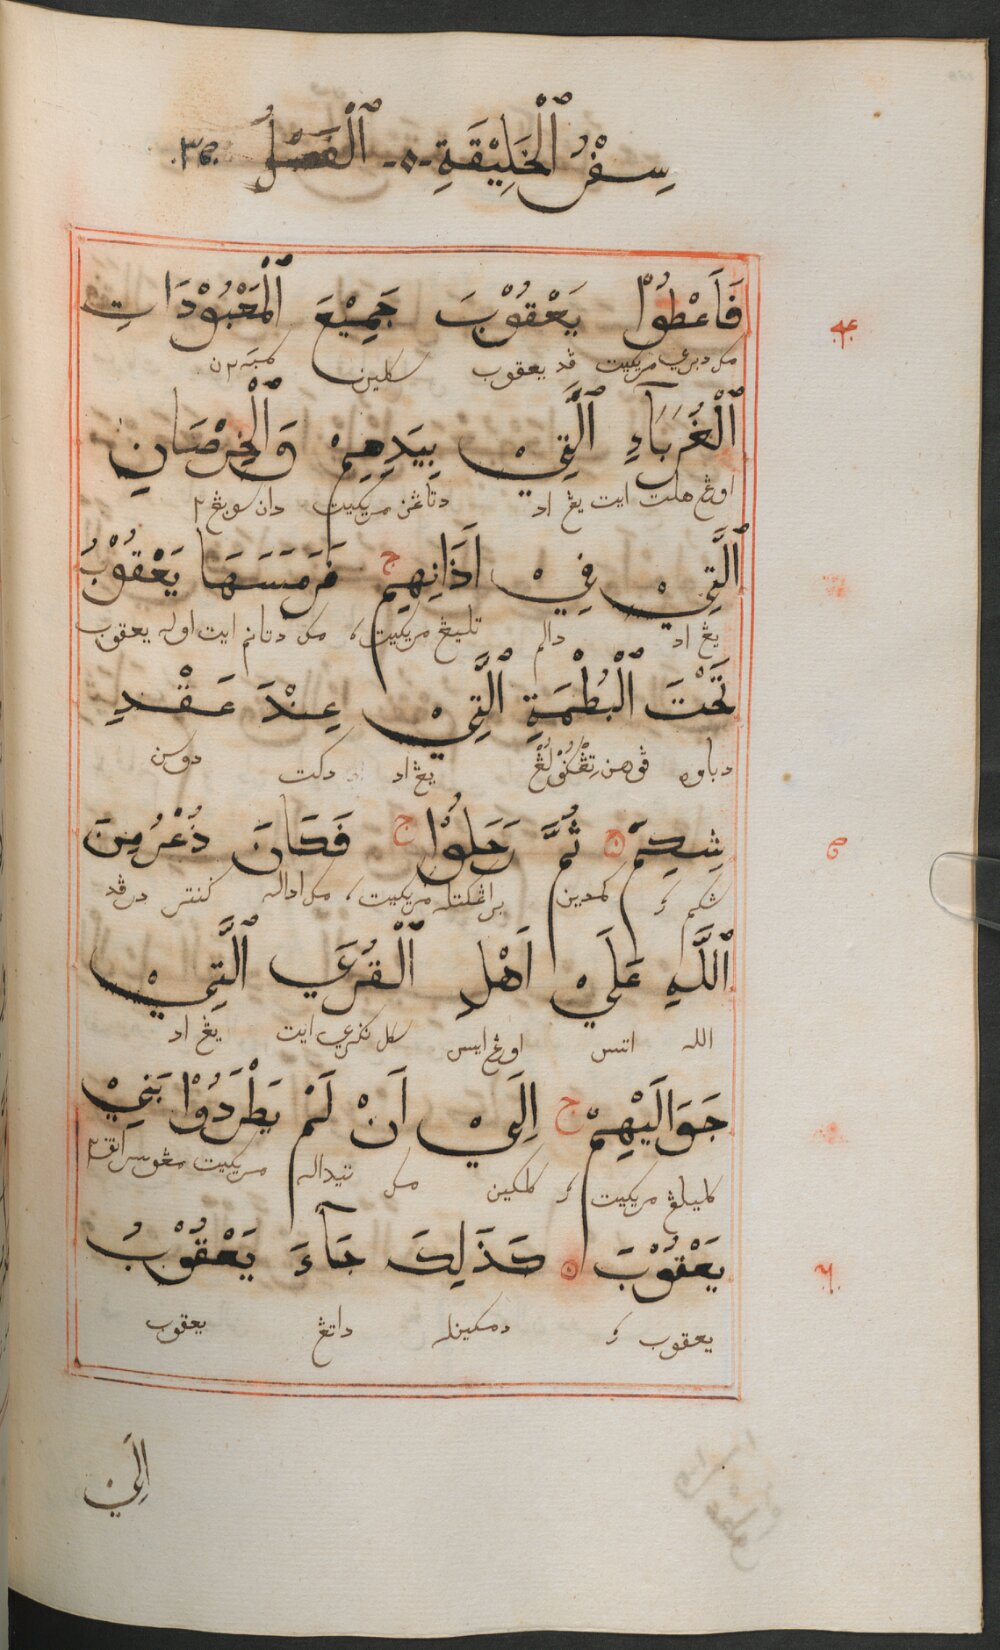 سِفْرُ ٱلْخَلِيْقَةِ ٱلْفَصْلُ ٣٥
فَاَعْطُوْا يَعْقُوْبَ جَمِيْعَ ٱلْمَعْبُوْدَاتِ
مک دبري مريکيت ڤد يعقوب سکلين
ٱلْغُرَبَآءِ ٱلَّتِيْ بِيَدِهِمْ وَٱلْخِرْصَانِ
اورڠ هلت ايت يڠ اد دتاڠن مريکيت دان سوبڠ٢
ٱلَّتِيْ فِيْ اَذَانِهِمْ ج فَرَمَسَهَا يَعْقُوْبُ
يڠ اد دالم تليڠ مريکيت، مک دتانم ايت اوله يعقوب
تَحْتَ ٱلْبُطْمَةِ ٱلَّتِيْ عِنْدَ عَقْدِ
دباوه ڤوهن يڠ اد دکت دوسن
شِكِمْ ثُمَّ رَحَلُوْا ج فَكَانَ ذُعْرُ مِنَ
شکم کمدين براڠکتله مريکيت، مک اداله کنتر درڤد
ٱللَّهِ عَلَيْ اَهْلِ ٱلْقُرَيِ ٱلَّتِيْ
الله اتس اورڠ ايس سکل نکري ايت يڠ اد
حَوَالَيْهِمْ ج اِلَيْ اَنْ لَمْ يَطْرَدُوْا بَنِيْ
کليلڠ مريکيت مک تيداله مريکيت
يَعْقُوْبَ كَذَلِكَ جَآءَ يَعْقُوْبُ
يعقوب دمکينله داتڠ يعقوب
اِلَيْ
٤
٥
٦